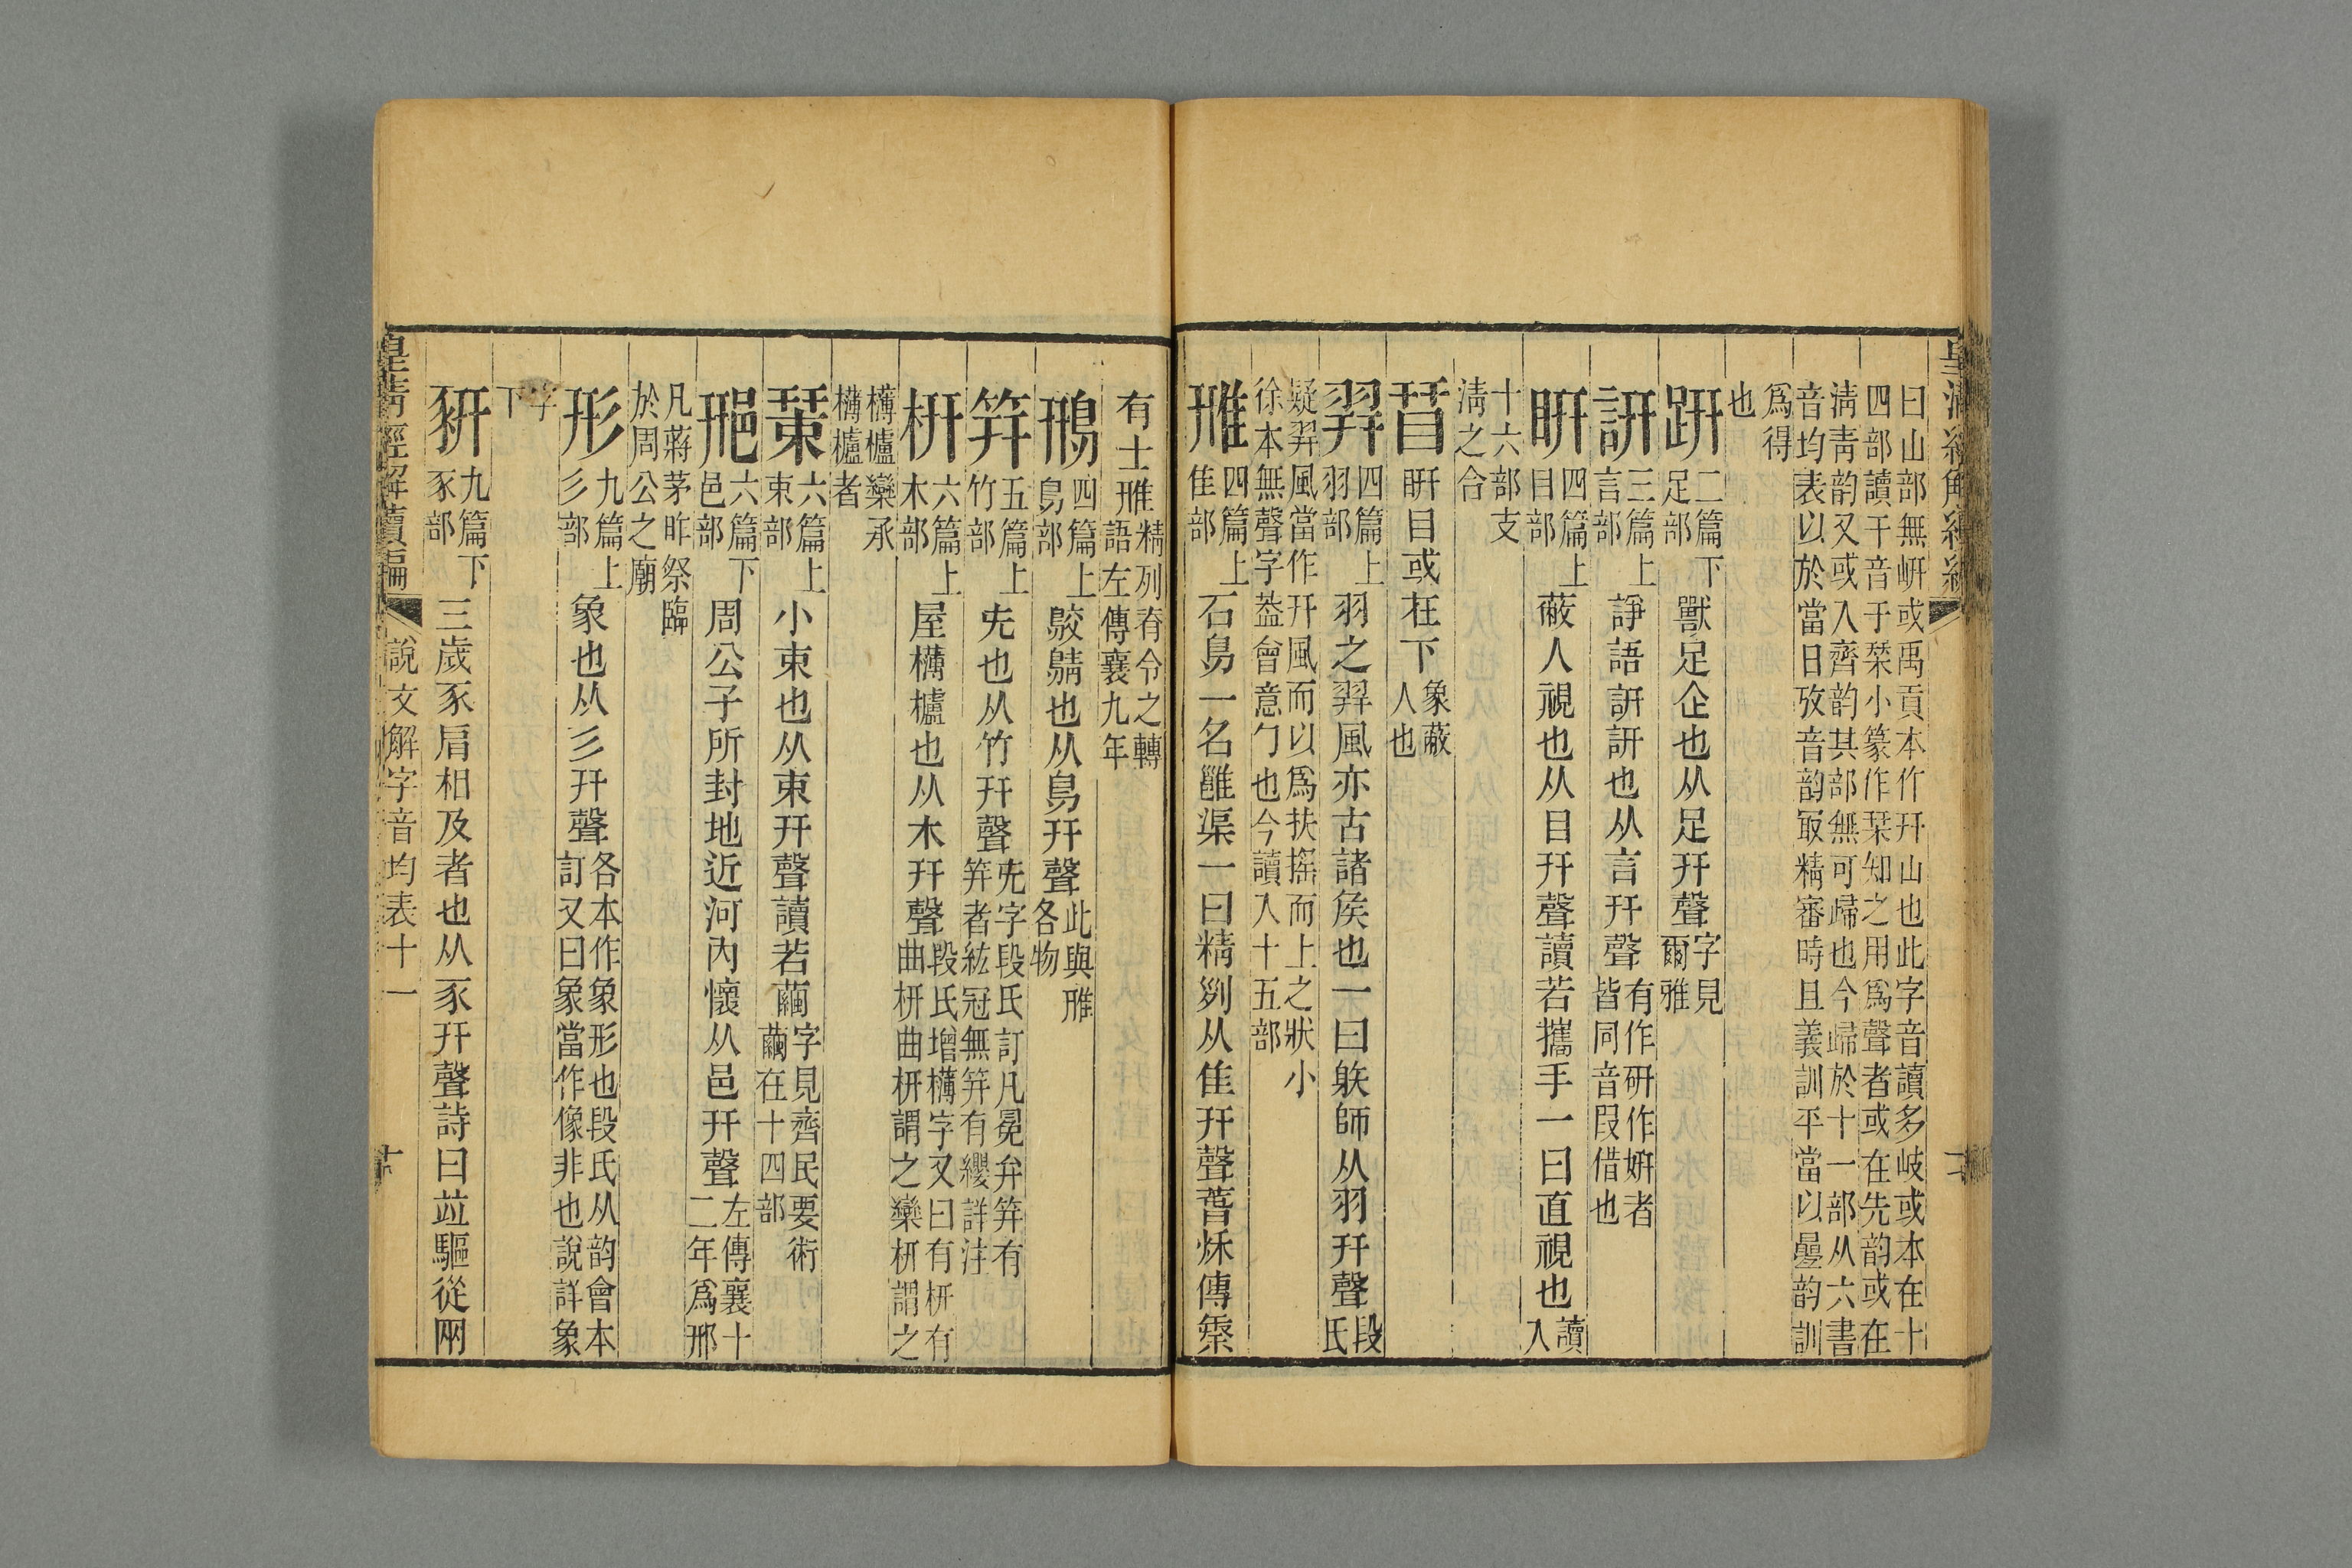 曰山部無岍或禹貢本作幵山也此字音讀多岐或本在十
四部讀干音于栞小篆作栞知之用爲聲者或在先韵或在
淸靑韵又或入齊韵其部無可歸也今歸於十一部从六書
音均表以於當日攷音韵最精審時且義訓平當以曡韵訓
爲得
也
趼二篇下足部獸足企也从足幵聲字見爾雅
訮三篇上言部諍語訮訮也从言幵聲有作研作姸者皆同音叚借也
盰四篇上目部蔽人視也从目幵聲讀若攜手一曰直視也讀入
十六部支
淸之合
䀘盰目或在下象蔽人也
羿四篇上羽部羽之羿風亦古諸矦也一曰躲師从羽幵聲段氏
疑羿風當作幵風而以爲扶搖而上之狀小
徐本無聲字葢會意勹也今讀入十五部
雃四篇上隹部石鳥一名雝渠一曰精列从隹幵聲萅秌傳秦
有士雃精列脊令之轉語左傳襄九年
鳽四篇上鳥部鵁鶄也从鳥幵聲此與雃各物
笄五篇上竹部先也从竹幵聲先字段氏訂凡冕弁笄有笄者紘冠無笄有纓詳注
枅六篇上木部屋欂櫨也从木幵聲段氏增欂字又曰有枅有曲枅曲枅謂之欒枅謂之
欂櫨欒承
欂櫨者
㯥六篇上束部小束也从束幵聲讀若繭字見齊民要術繭在十四部
邢六篇下邑部周公子所封地近河內懷从邑幵聲左傳襄十二年爲邢
凡蔣茅昨祭臨
於周公之廟
形九篇上彡部象也从彡幵聲各本作象形也段氏从韵會本訂又曰象當作像非也說詳象
字
下
豣九篇下豕部三歲豕肩相及者也从豕幵聲詩曰竝驅從兩
皇淸經解續編
說文解字音均表十一